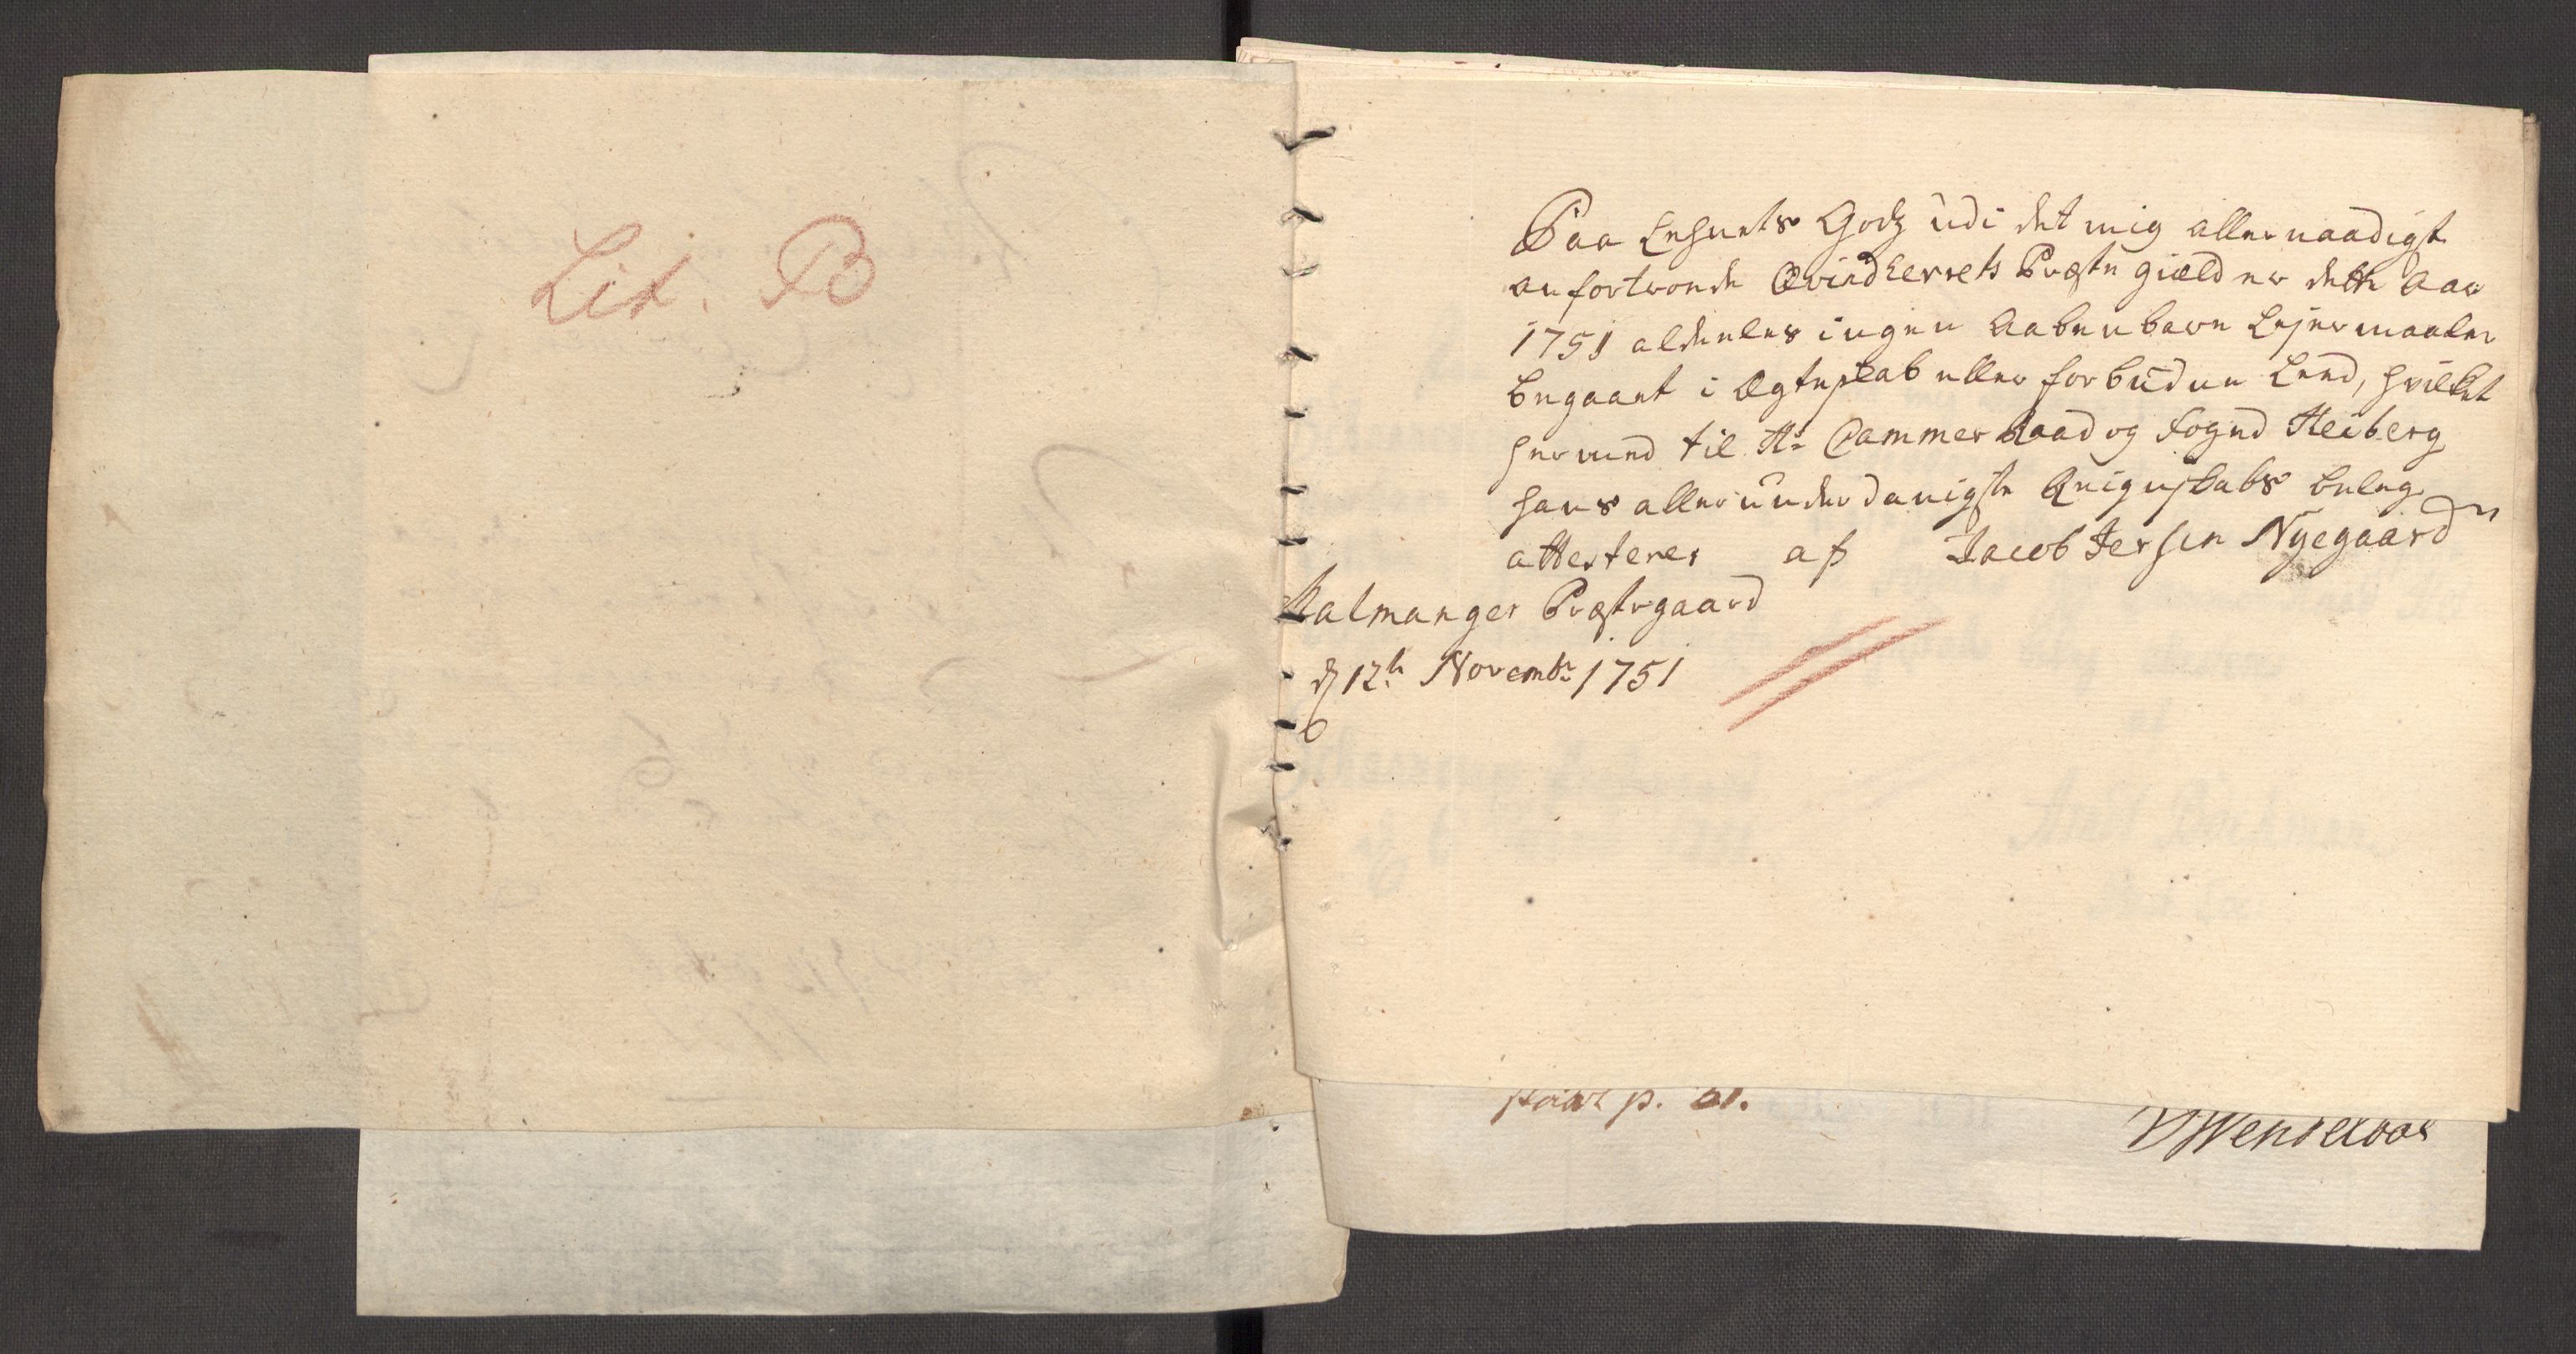 Lit. B
Paa Lehnets Godz udi det mig allernaadigst
anfortroede Qvindherrets Præste gield er dette Aar
1751 aldeeles ingen Aabenbare Lejermaaler
begaaet i Ægteskab eller forbudne Leed, hvilket
hermed til Hr Cammer Raad og Fogud Heiberg
hans allerunderdanigste Reignskabs beleg
attesteres af Jacob Jersin Nyegaard
Malmanger Præstegaard
d 12te Novembr 1751
p. 61.